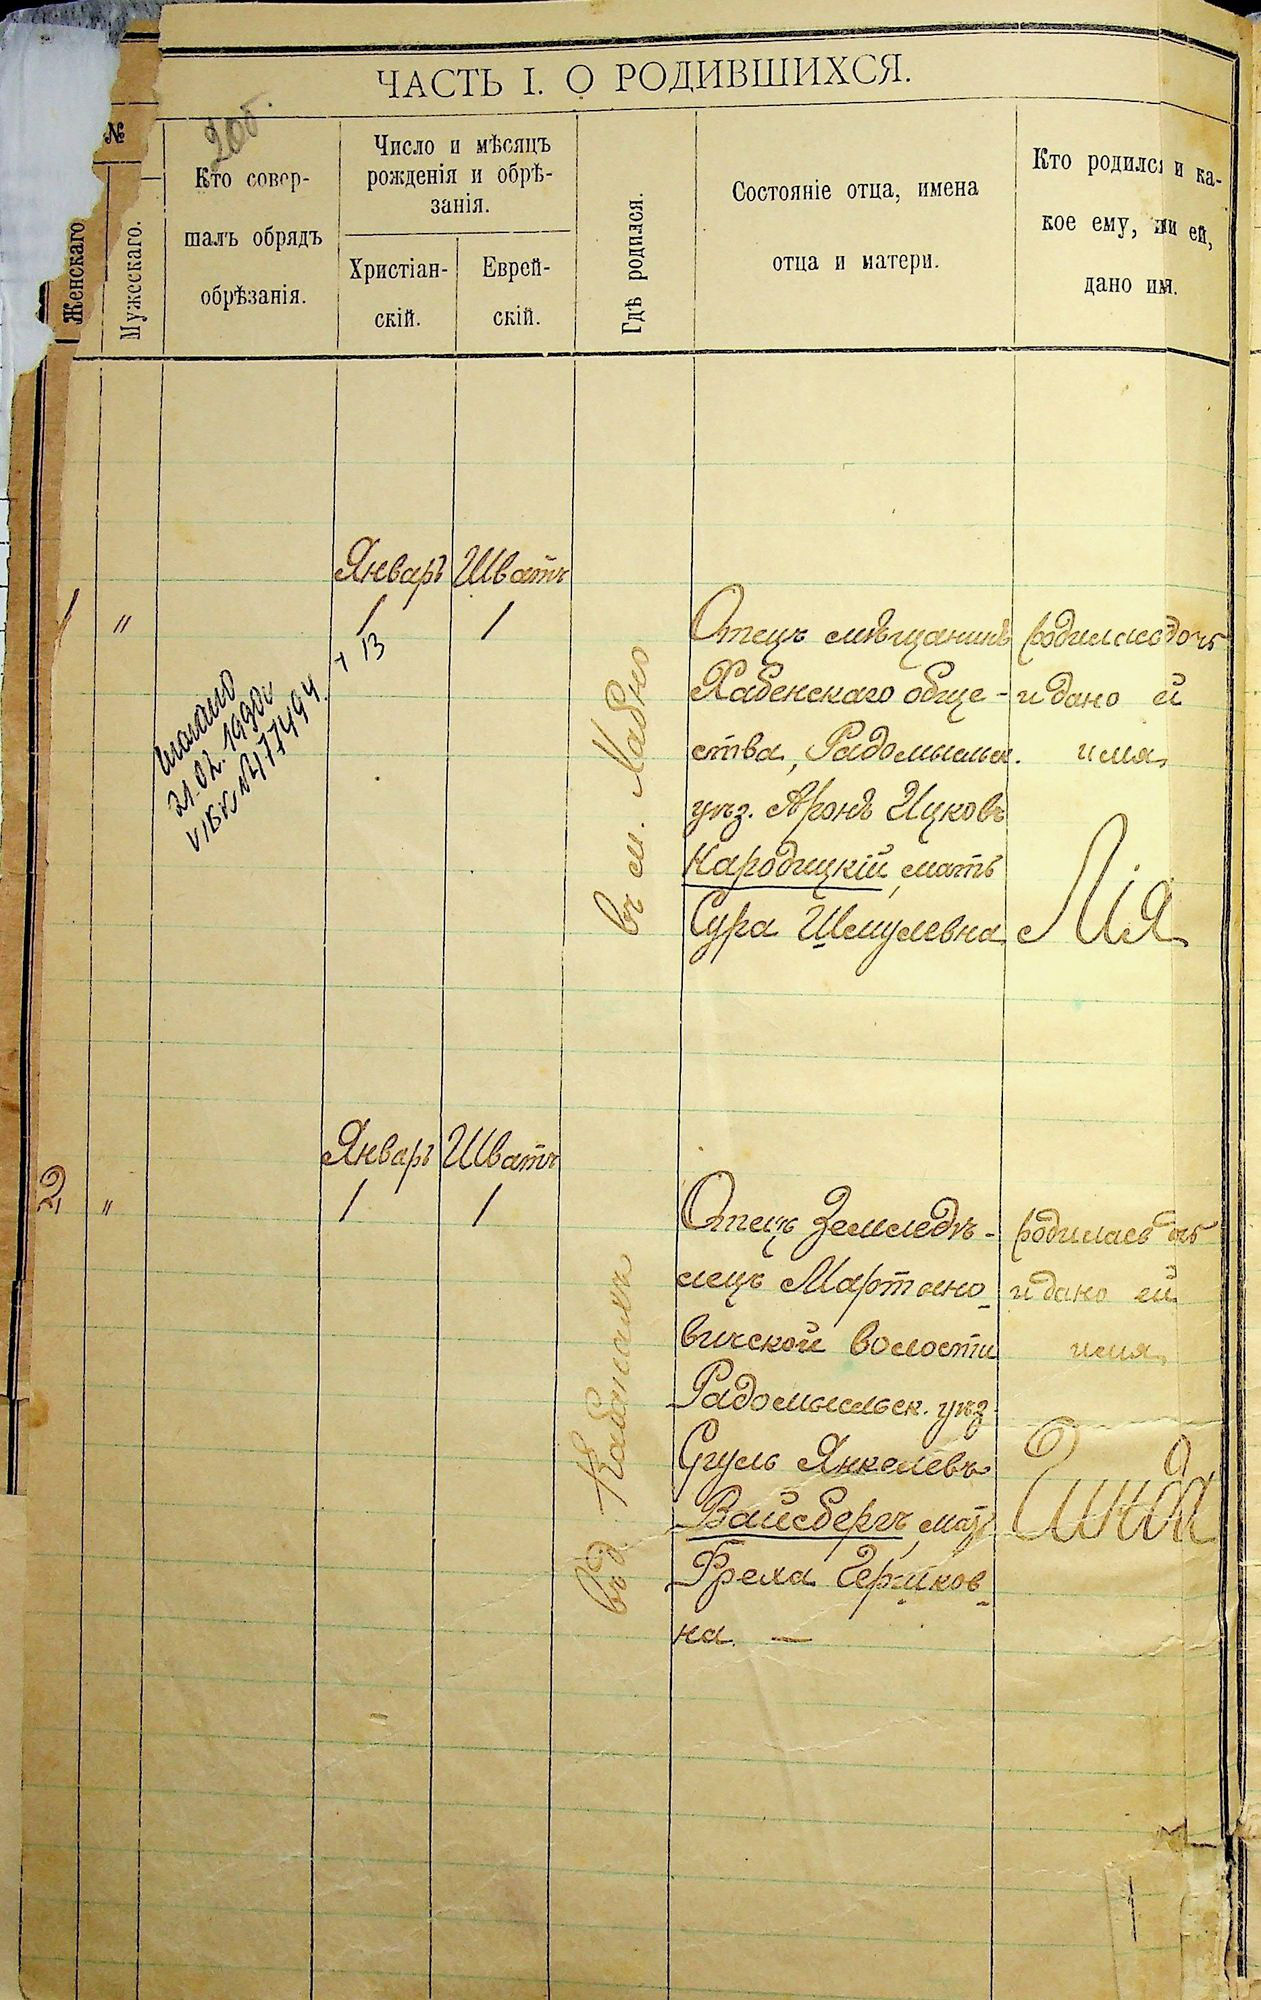 ЧАСТЬ I. О РОДИВШИХСЯ.
№
Женскаго
Мужескаго.
20б.
Кто совер-
шалъ обрядъ
обрѣзанія.
Число и мѣсяцъ
рожденія и обрѣ-
занія.
Христіан-
скій.
Еврей-
скій.
Гдѣ родился.
Состояніе отца, имена
отца и матери.
Кто родился и ка-
кое ему, или ей,
дано имя.
1
"
21.02.1990г
№ 477494
Январь
1
+ 13
Шватъ
1
въ м. Хабно
Отецъ мѣщанинъ
Хабенскаго обще-
ства, Радомысльск.
уѣз. Аронъ Ицковъ
Народицкій, мать
Сура Шмулевна
родилась дочь
и дано ей
имя
Лія
2
"
Январь
1
Шватъ
1
въ д Кабанахъ
Отецъ Земледѣ-
лецъ Мартыно-
вичской волости
Радомысльск. уѣз.
Сруль Янкелевъ
Вайсбергъ, мать
Фрема Гершков-
на. —
родилась дочь
и дано ей
имя
Гинда